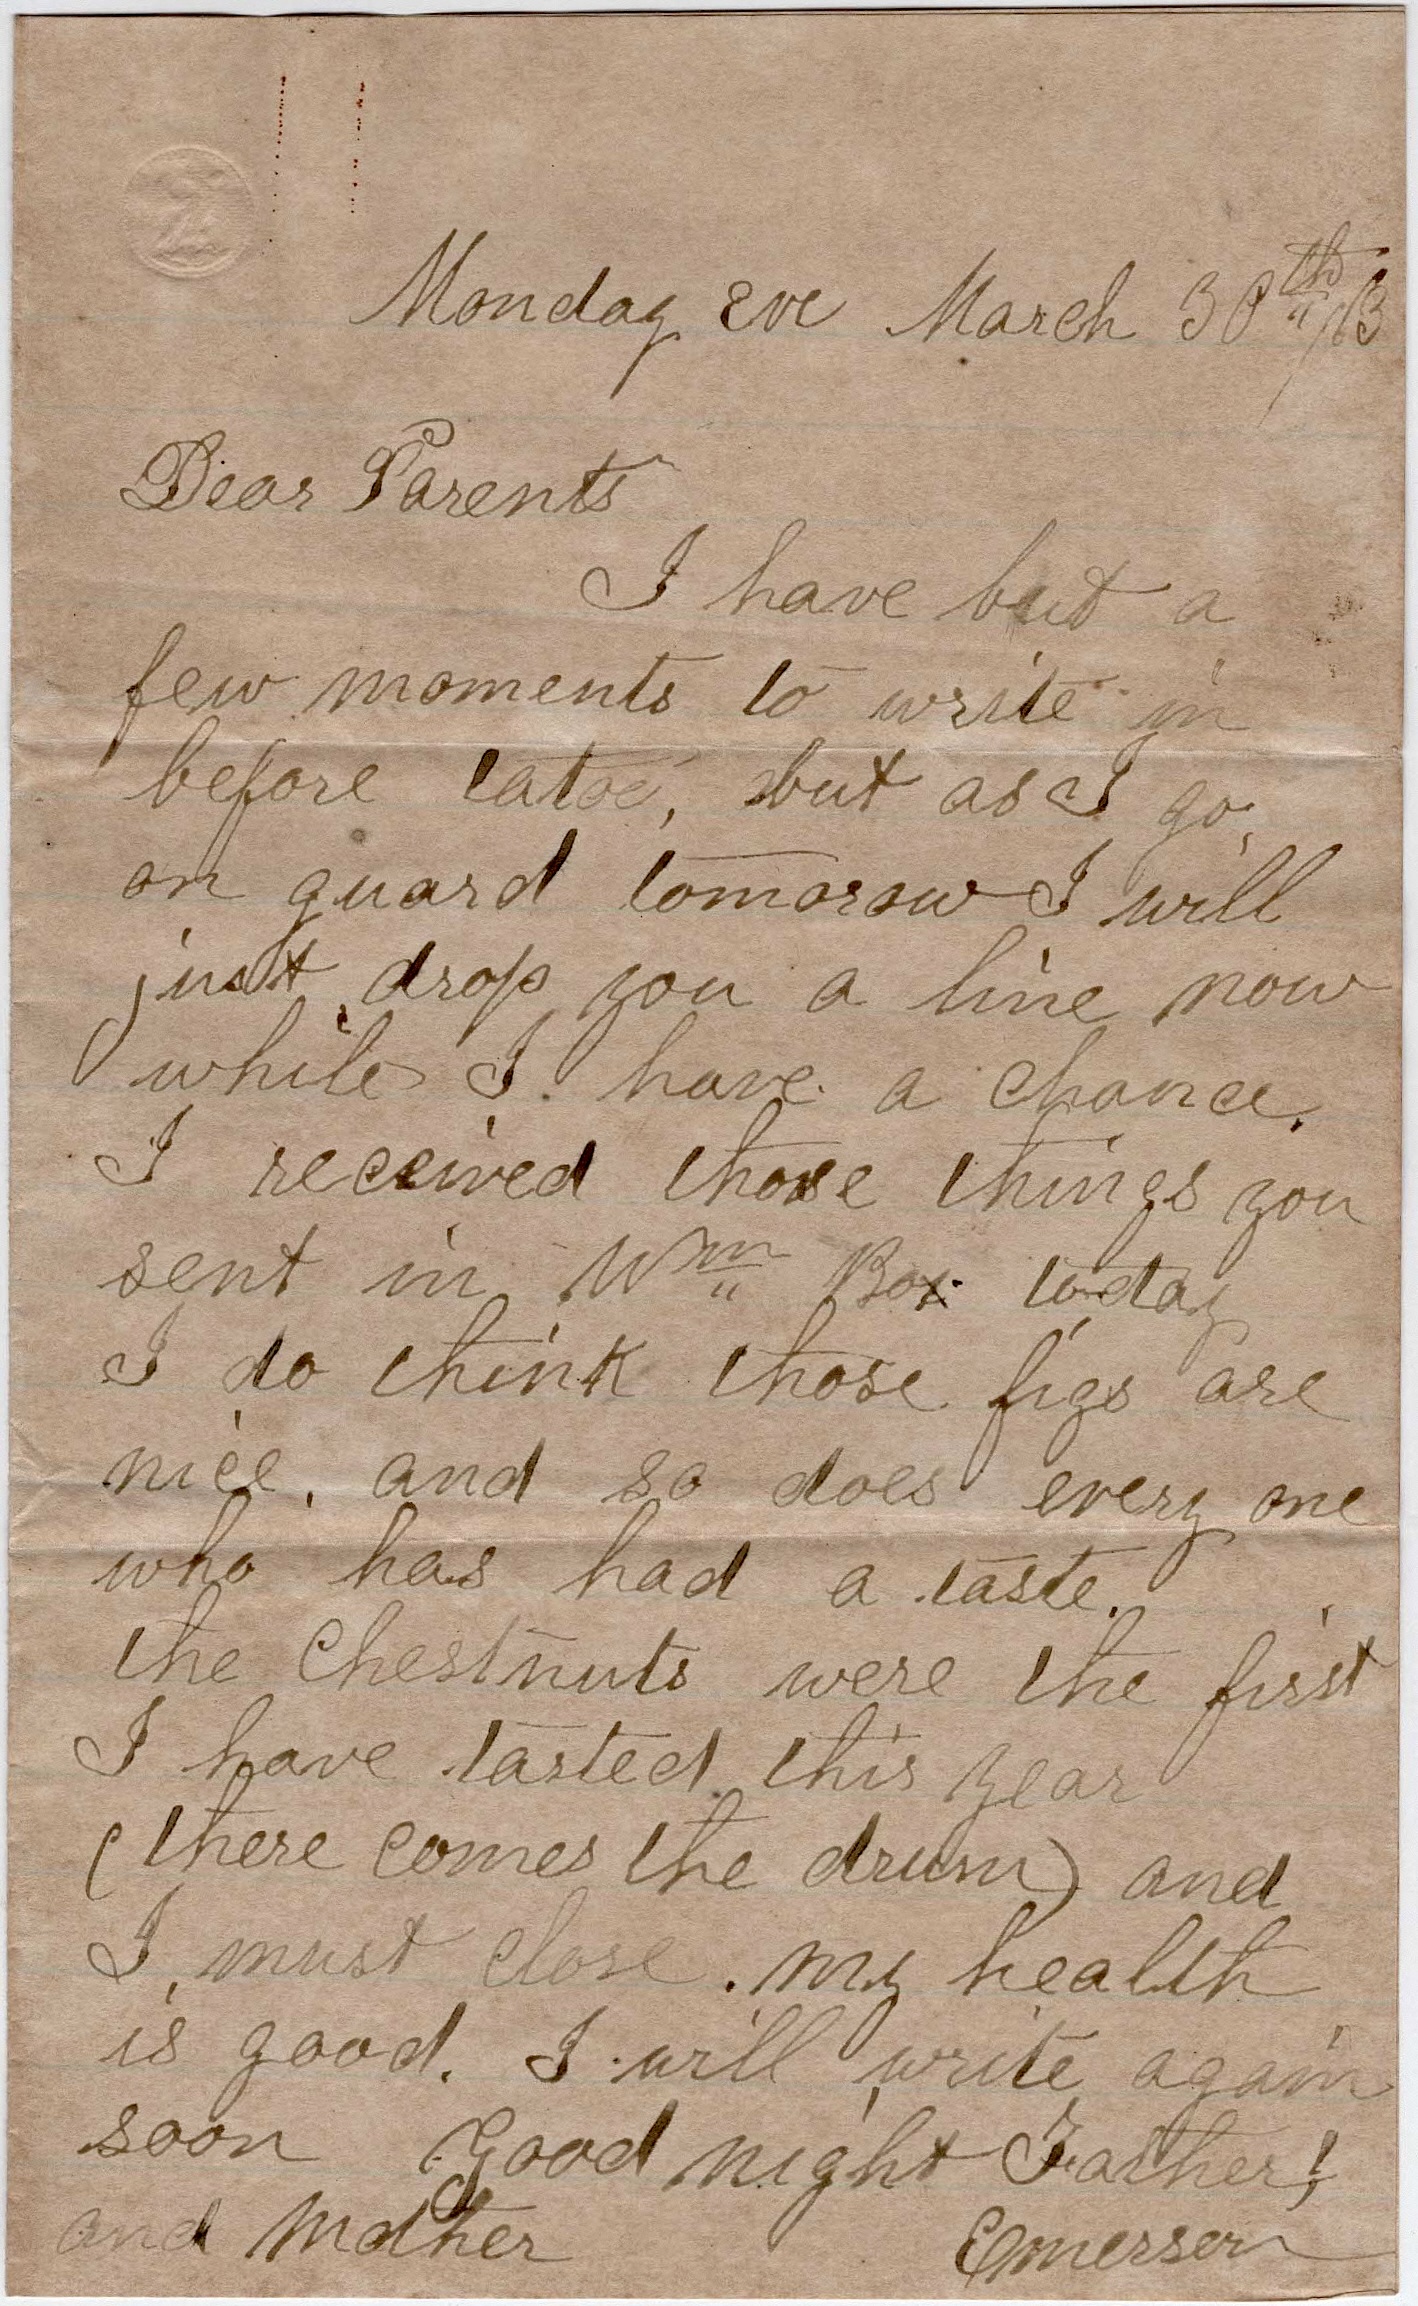 Monday Eve March 30th /63
Dear Parents
I have but a
few moments to write in
before tatoe, but as I go
on guard tomorow I will
just drop you a line now
while I have a chance.
I received those things you
sent in Wm Box today
I do think those figs are
nice. and so does every one
who has had a taste.
the Chestnuts were the first
I have tasted this year
(there comes the drum) and
I must close. my health
is good. I will write again
soon Good night Father!
and Mother Emerson